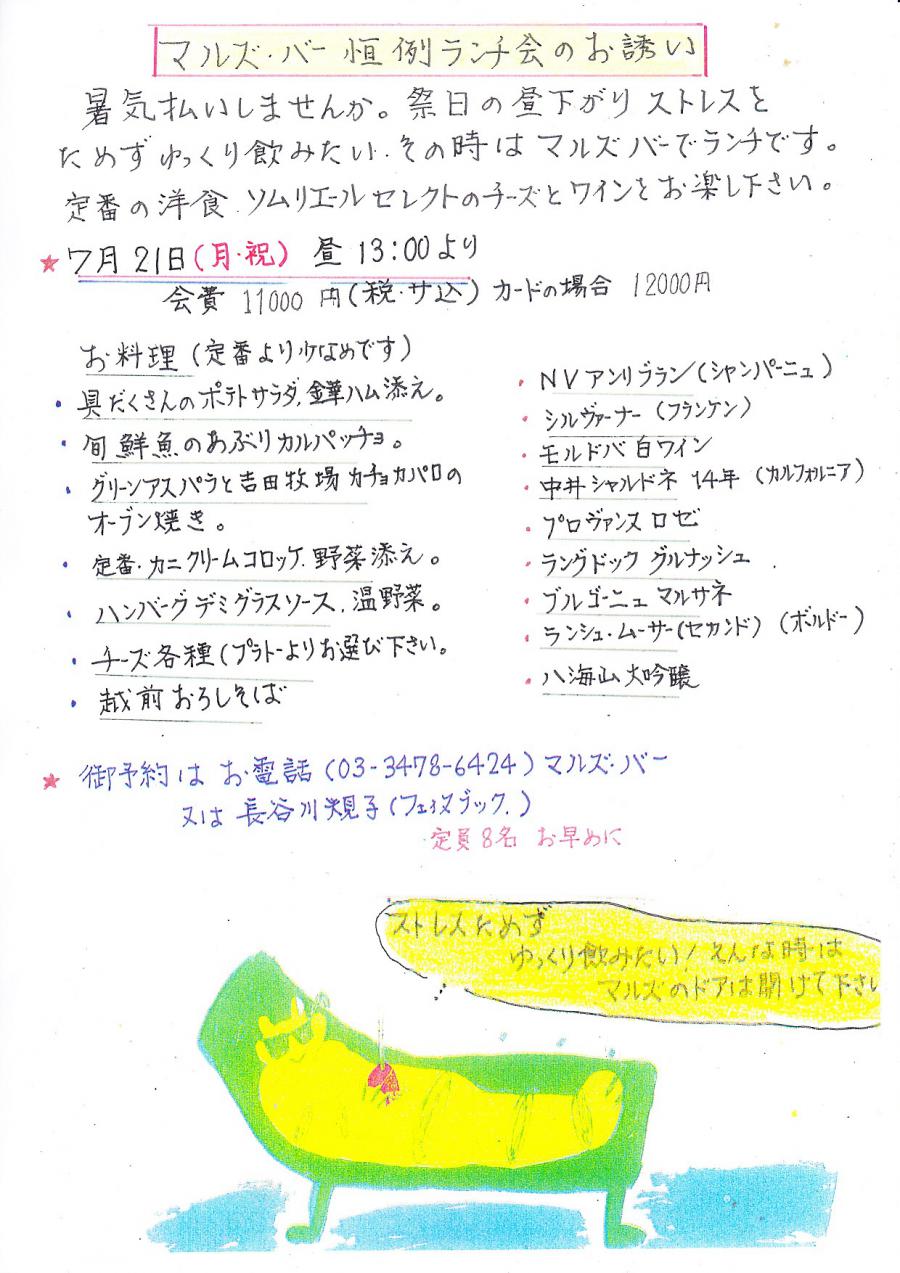 マルズ・バー 恒例ランチ会のお誘い
暑気払いしませんか。祭日の昼下がり ストレスを
ためず ゆっくり飲みたい.その時は マルズバーでランチです。
定番の洋食.ソムリエール セレクトのチーズとワインをお楽し下さい。
★ 7月21日(月・祝) 昼 13:00より
会費 11000円(税・サ込) カードの場合 12000円
お料理 (定番より少なめです)
・具だくさんのポテトサラダ.金華ハム添え。
・旬鮮魚のあぶりカルパッチョ。
・グリーンアスパラと吉田牧場カチョカバロの
オーブン焼き。
・定番.カニクリームコロッケ.野菜添え。
・ハンバーグデミグラスソース.温野菜。
・チーズ各種(プラトーよりお選び下さい。
・越前おろしそば
・NVアンリブラン(シャンパーニュ)
・シルヴァーナー(フランケン)
・モルドバ 白ワイン
・中井シャルドネ 14年 (カルフォルニア)
・プロヴァンス ロゼ
・ラングドック グルナッシュ
・ブルゴーニュ マルサネ
・ランシュ・ムーサー(セカンド) (ボルドー)
・八海山大吟醸
★ 御予約は お電話(03-3478-6424)マルズ・バー
又は 長谷川規子(フェイスブック.)
定員8名 お早めに
ストレスためず
ゆっくり飲みたい! そんな時は
マルズのドアは開けて下さい